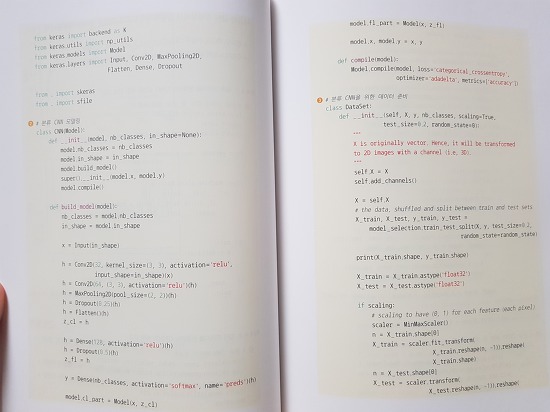 from keras import backend as K
from keras.utils import np_utils
from keras.models import Model
from keras.layers import Input, Conv2D, MaxPooling2D,
Flatten, Dense, Dropout
from . import skeras
from . import sfile
❷ # 분류 CNN 모델링
class CNN(Model):
def __init__(model, nb_classes, in_shape=None):
model.nb_classes = nb_classes
model.in_shape = in_shape
model.build_model()
super().__init__(model.x, model.y)
model.compile()
def build_model(model):
nb_classes = model.nb_classes
in_shape = model.in_shape
x = Input(in_shape)
h = Conv2D(32, kernel_size=(3, 3), activation='relu',
input_shape=in_shape)(x)
h = Conv2D(64, (3, 3), activation='relu')(h)
h = MaxPooling2D(pool_size=(2, 2))(h)
h = Dropout(0.25)(h)
h = Flatten()(h)
z_cl = h
h = Dense(128, activation='relu')(h)
h = Dropout(0.5)(h)
z_fl = h
y = Dense(nb_classes, activation='softmax', name='preds')(h)
model.cl_part = Model(x, z_cl)
model.fl_part = Model(x, z_fl)
model.x, model.y = x, y
def compile(model):
Model.compile(model, loss='categorical_crossentropy',
optimizer='adadelta', metrics=['accuracy'])
❸ # 분류 CNN을 위한 데이터 준비
class DataSet:
def __init__(self, X, y, nb_classes, scaling=True,
test_size=0.2, random_state=0):
"""
X is originally vector. Hence, it will be transformed
to 2D images with a channel (i.e, 3D).
"""
self.X = X
self.add_channels()
X = self.X
# the data, shuffled and split between train and test sets
X_train, X_test, y_train, y_test =
model_selection.train_test_split(X, y, test_size=0.2,
random_state=random_state)
print(X_train.shape, y_train.shape)
X_train = X_train.astype('float32')
X_test = X_test.astype('float32')
if scaling:
# scaling to have (0, 1) for each feature (each pixel)
scaler = MinMaxScaler()
n = X_train.shape[0]
X_train = scaler.fit_transform(
X_train.reshape(n, -1)).reshape(
X_train.shape)
n = X_test.shape[0]
X_test = scaler.transform(
X_test.reshape(n, -1)).reshape(